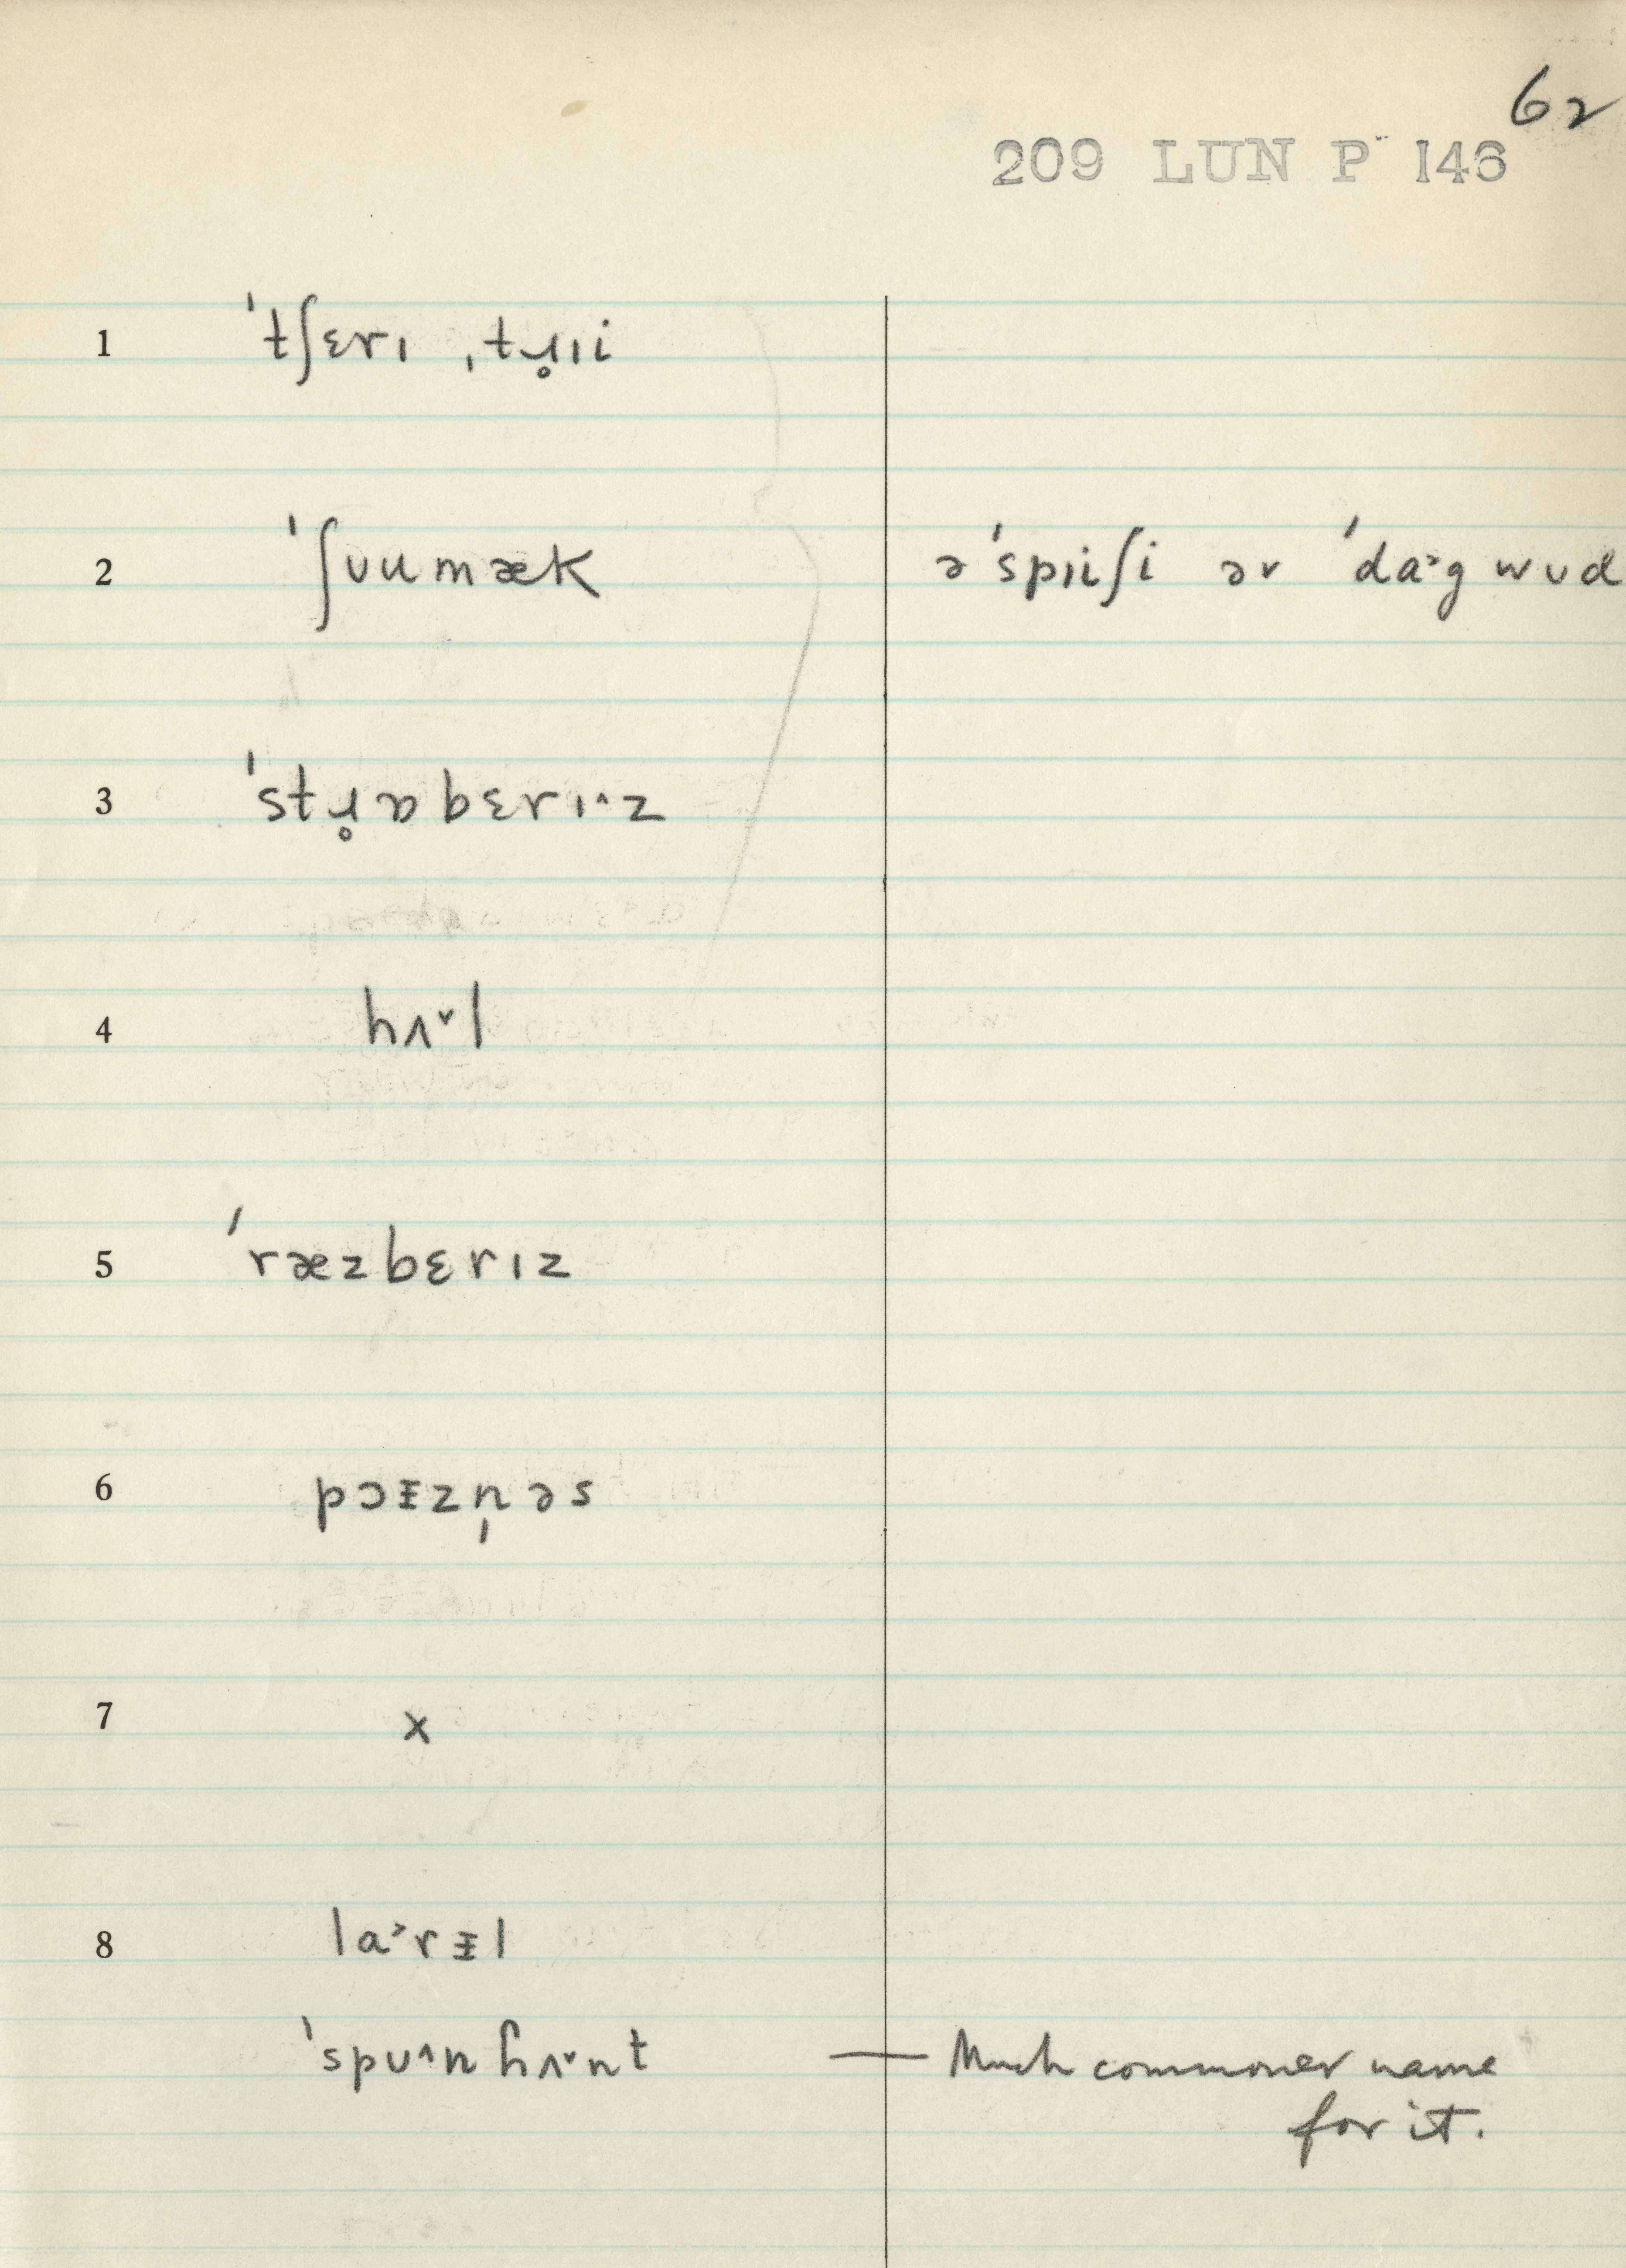 62
209 LUN P 146
1 ˈtʃɛrɪ ˌtɹ̥ɪi
2 ˈʃʊumæk əˈspɪiʃi əv ˈda˃gwʊd
3 ˈstɹ̥ɒbɛrɪ˄z
4 hʌ˅l
5 ˈræzbɛrɪz
6 pɔᵻzn̩əs
7 x
8 la˃rᵻl
ˈspu˄nɦʌ˅nt — Much commoner name
for it.